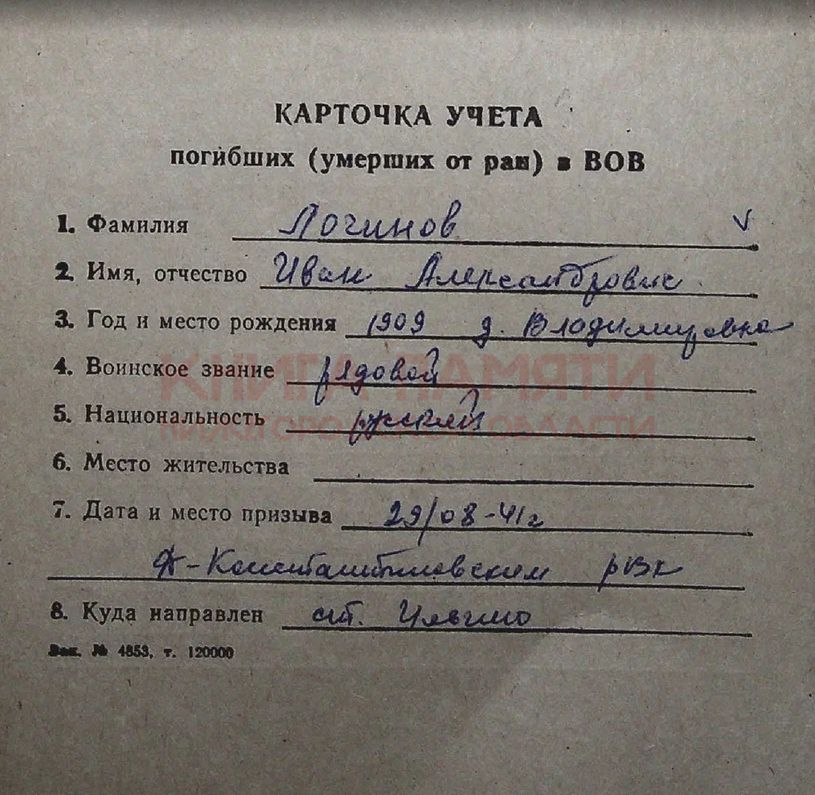 КАРТОЧКА УЧЕТА
погибших (умерших от ран) в ВОВ
1. Фамилия Логинов ✓
2. Имя, отчество Иван Александрович
3. Год и место рождения 1909 д. Владимировка
КНИГА ПАМЯТИ
4. Воинское звание рядовой
НИЖЕГОРОДСКОЙ ОБЛАСТИ
5. Национальность русский
6. Место жительства
7. Дата и место призыва 29/08-41г
Д-Константиновским рвк
8. Куда направлен ст. Ильино
Зак. № 4853, т. 120000